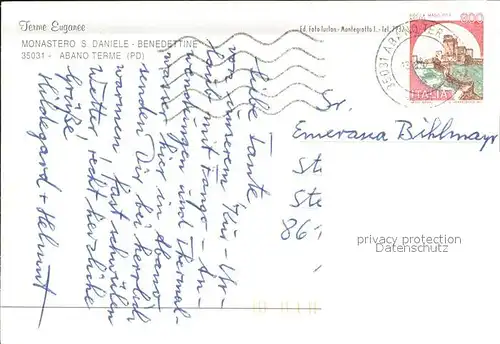 Terme Euganee
MONASTERO S. DANIELE - BENEDETTINE
35031 - ABANO TERME (PD)
Ed. Foto Turlon - Montegrotto T. - Tel.
800
ITALIA
35031 ABANO TER
Liebe Tante,
von unserem Kur-Ur-
laub mit Fango-An-
wendungen und Thermal-
wasser hier in Abano
senden Dir bei herrlich
warmem, fast schwülen
Wetter recht herzliche
Grüße!
Hildegard + Helmut
Sr.
Emerana Bihlmayr
St
Ste
86
privacy protection
Datenschutz